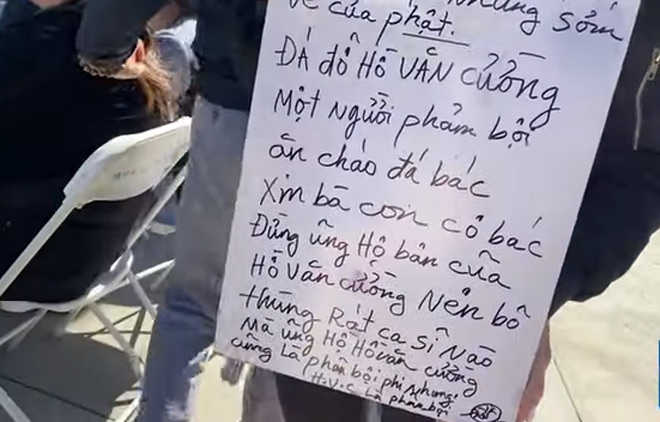 về của phật.
ĐẢ đỔ HỒ VĂN CƯỜNG
MộT NGƯỜI phảm bội
ăn cháo đá bác
XIN bà con cô bác
Đừng ũng Hộ bản cuã
Hồ Văn cường NêN bõ
thùng Rát ca sĩ nào
Mà ũng Hộ Hồ văn cường
cũng Là phản bội phi Nhung
H.V.C Là phảm bội